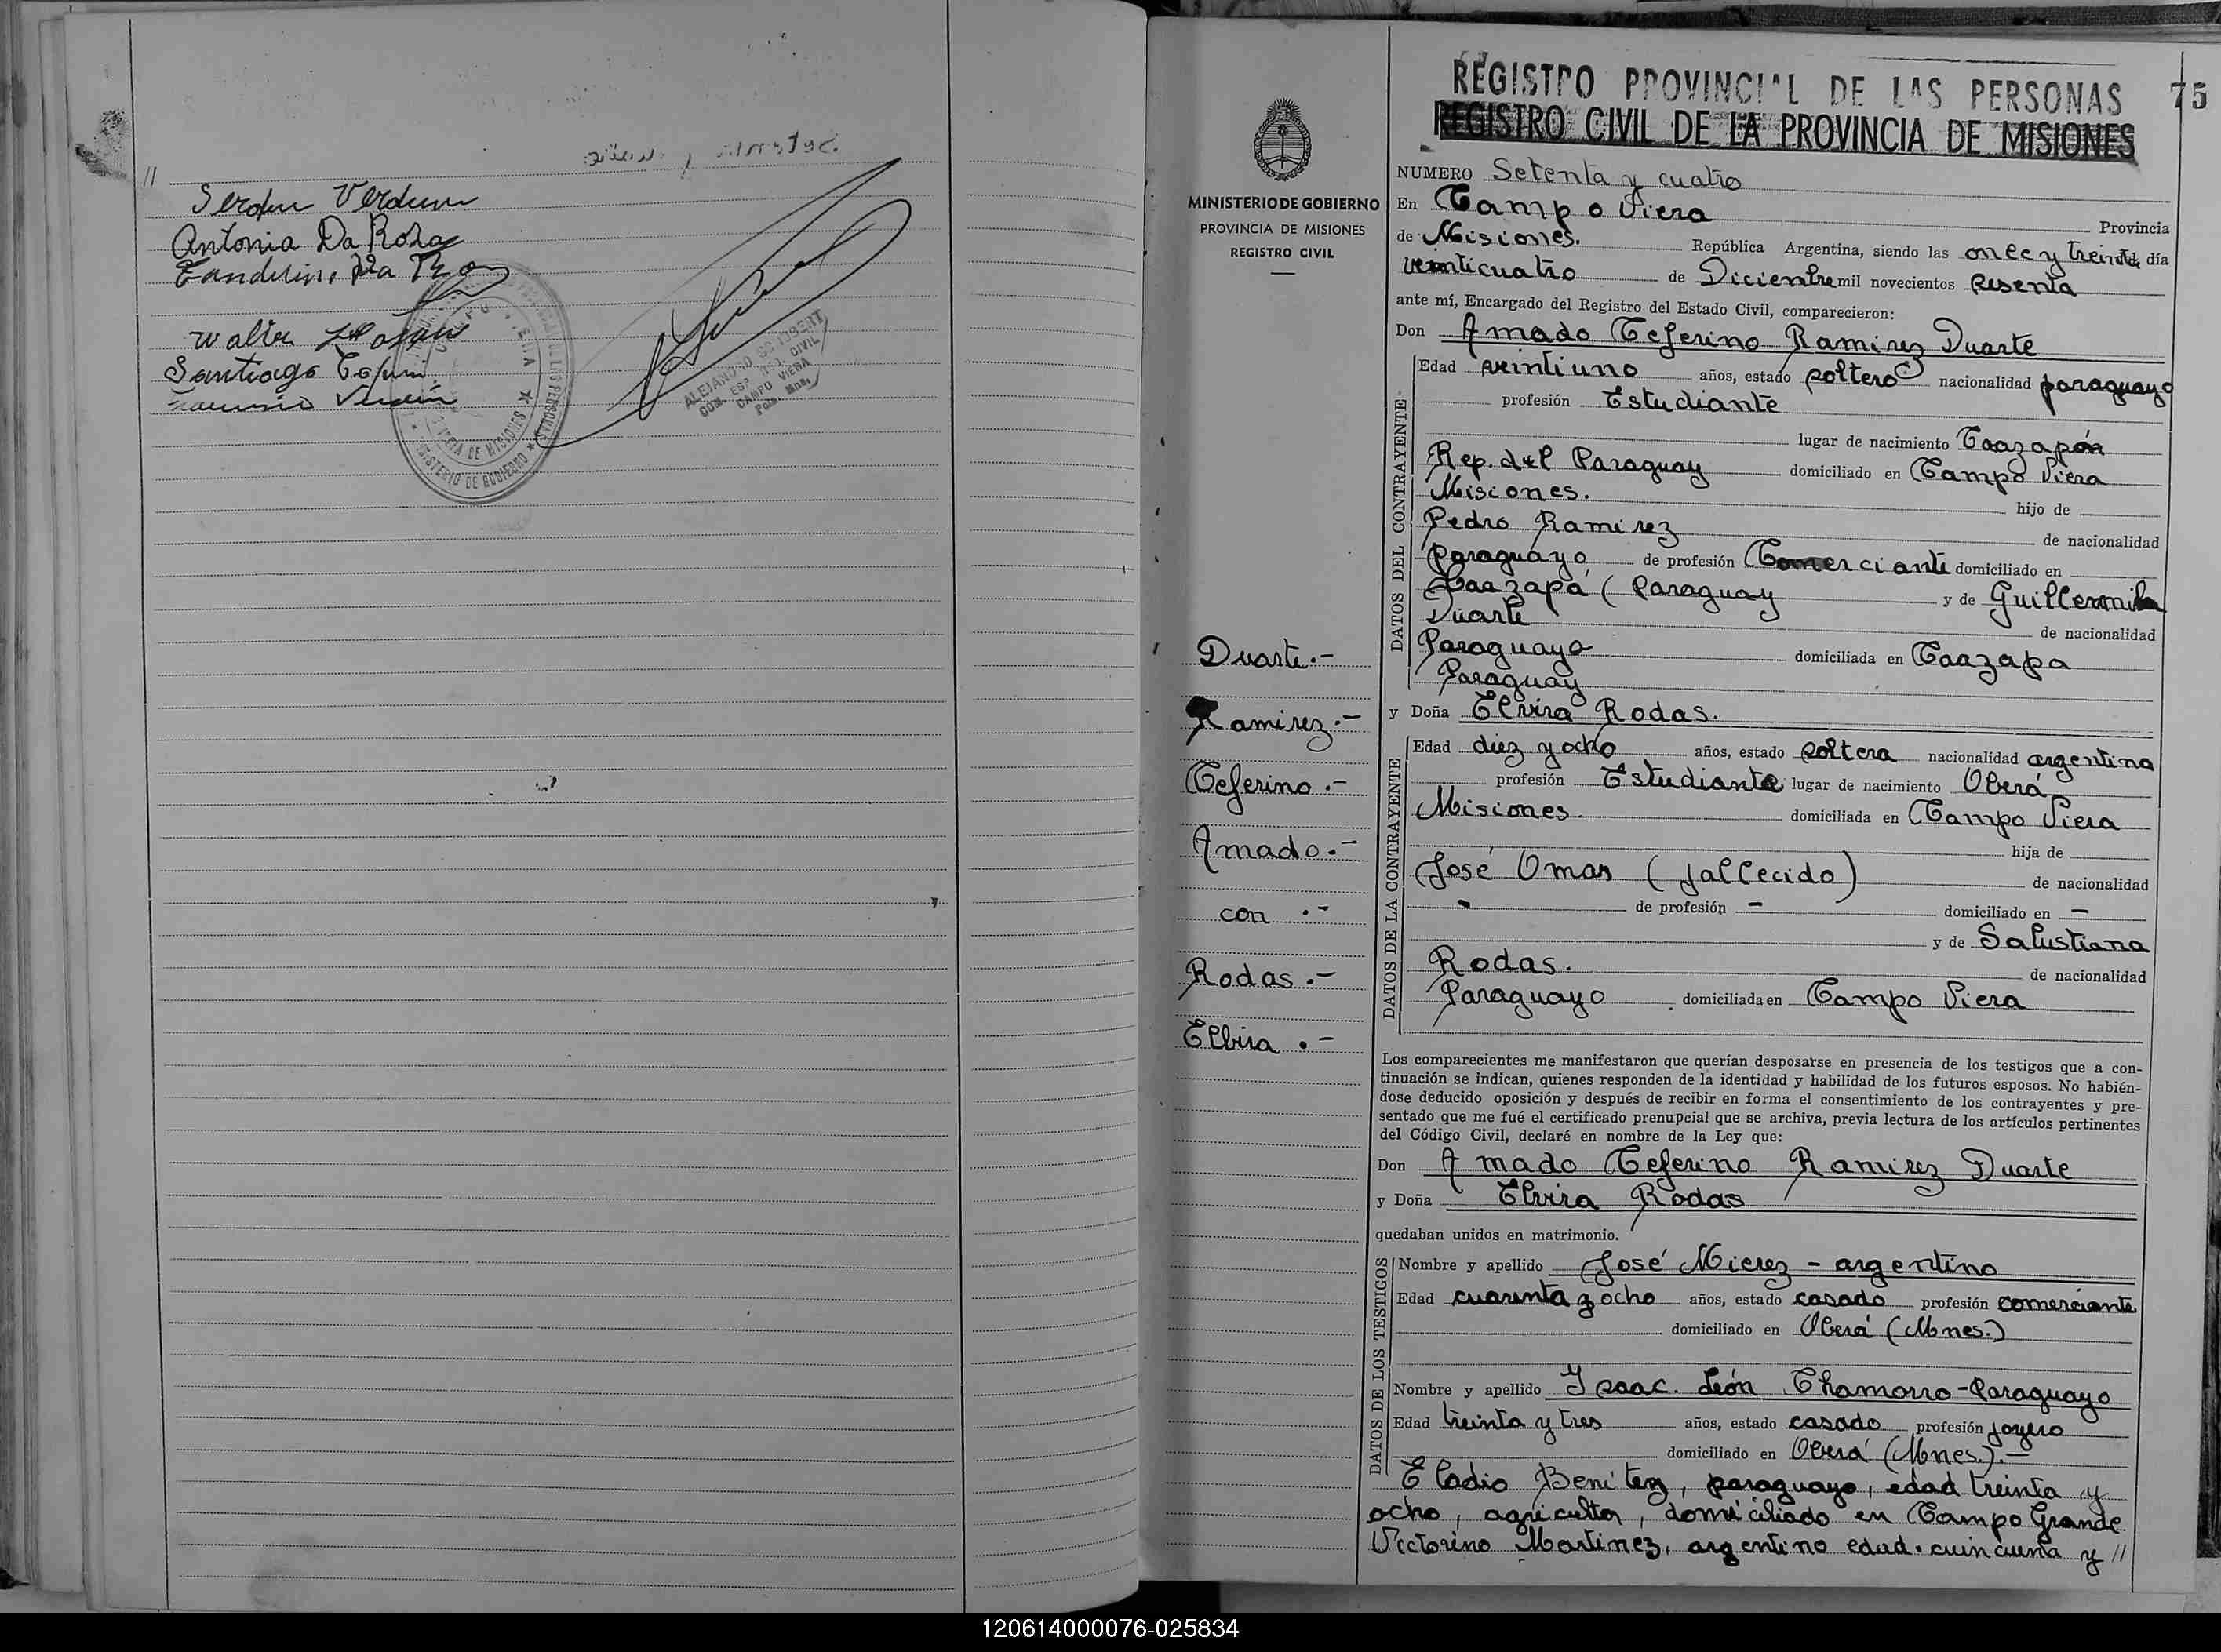 //
Verdun
Antonia Da Rosa
Walter
Santiago
MINISTERIO DE GOBIERNO
ALEJANDRO
CAMPO VIERA
REGISTRO PROVINCIAL DE LAS PERSONAS 75
REGISTRO CIVIL DE LA PROVINCIA DE MISIONES
MINISTERIO DE GOBIERNO
PROVINCIA DE MISIONES
REGISTRO CIVIL
Duarte.-
Ramirez.-
Ceferino.-
Amado.-
con .-
Rodas.-
Elbira .-
NUMERO Setenta y cuatro
En Campo Viera Provincia
de Misiones. República Argentina, siendo las once y treinta día
veinticuatro de Diciembre mil novecientos sesenta
ante mí, Encargado del Registro del Estado Civil, comparecieron:
Don Amado Ceferino Ramirez Duarte
DATOS DEL CONTRAYENTE
Edad veintiuno años, estado soltero nacionalidad paraguayo
profesión Estudiante
lugar de nacimiento Caazapá
Rep. del Paraguay domiciliado en Campo Viera
Misiones. hijo de
Pedro Ramirez de nacionalidad
paraguayo de profesión Comerciante domiciliado en
Caazapá (Paraguay y de Guillermina
Duarte de nacionalidad
Paraguaya domiciliada en Caazapa
Paraguay
y Doña Elvira Rodas.
DATOS DE LA CONTRAYENTE
Edad diez y ocho años, estado soltera nacionalidad argentina
profesión Estudiante lugar de nacimiento Oberá
Misiones domiciliada en Campo Viera
hija de
José Omar (fallecido) de nacionalidad
- de profesión - domiciliado en -
y de Salustiana
Rodas. de nacionalidad
Paraguayo domiciliada en Campo Viera
Los comparecientes me manifestaron que querían desposarse en presencia de los testigos que a con-
tinuación se indican, quienes responden de la identidad y habilidad de los futuros esposos. No habién-
dose deducido oposición y después de recibir en forma el consentimiento de los contrayentes y pre-
sentado que me fué el certificado prenupcial que se archiva, previa lectura de los artículos pertinentes
del Código Civil, declaré en nombre de la Ley que:
Don Amado Ceferino Ramirez Duarte
y Doña Elvira Rodas
quedaban unidos en matrimonio.
DATOS DE LOS TESTIGOS
Nombre y apellido José Mierez - argentino
Edad cuarenta y ocho años, estado casado profesión comerciante
domiciliado en Oberá (Mnes.)
Nombre y apellido Isaac León Chamorro - Paraguayo
Edad treinta y tres años, estado casado profesión joyero
domiciliado en Oberá (Mnes.).-
Eladio Benitez, paraguayo, edad treinta y
ocho, agricultor, domiciliado en Campo Grande
Victorino Martinez, argentino edad cuincuenta y //
120614000076-025834